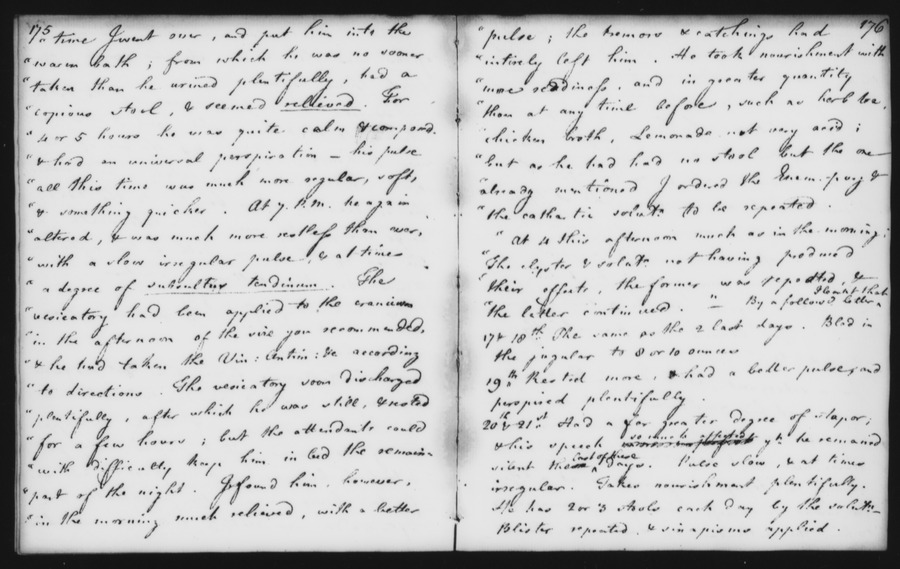 175
" time I went over, and put him into the
" warm bath; from which he was no sooner
" taken than he urined plentifully, had a
" copious stool, & seemed relieved. For
" 4 or 5 hours he was quite calm & composed.
" & had an universal perspiration – his pulse
" all this time was much more regular, soft,
" & something quicker. At 7 P.M. he again
" altered, & was much more restless than ever,
" with a slow irregular pulse, & at times
" a degree of subsultus tendinum. The
" vesicatory had been applied to the cranium
" in the afternoon of the size you recommended,
" & he had taken the Vin: Antim: &c according
" to directions. The vesicatory soon discharged
" plentifully, after which he was still, & rested
" for a few hours; but the attendants could
" with difficulty keep him in bed the remain-
" part of the night. I found him, however,
" in the morning much relieved, with a better
176
" pulse; the tremors & catchings had
" intirely left him. He took nourishment with
" more readiness, and in greater quantity
" than at any time before, such as herb tea,
" chicken broth, Lemonade not very acid;
" but as he had had no stool but the one
" already mentioned I ordered the Enem. purg &
" the cathartic solutn to be repeated.
" At 4 this afternoon much as in the morning;
" The clyster & solutn not having produced
" their effects, the former was repeated, &
" the latter continued. " – By a following letter I learnt that
17 & 18th The same as the 2 last days. Bled in
the jugular to 8 or 10 ounces
19th Rested more, & had a better pulse, and
perspired plentifully.
20th & 21st Had a far greater degree of stupor;
& his speech so much affected yt he remained
silent most of these days. Pulse slow, & at times
irregular. Takes nourishment plentifully.
He has 2 or 3 stools each day by the solutn–
Blister repeated & sinapisms applied.